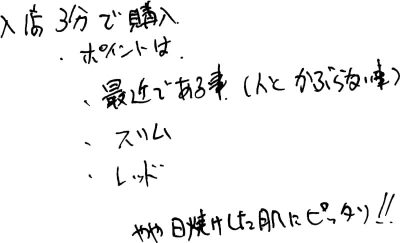 入店3分で購入
・ポイントは、
、最近である事(人とかぶらない事)
、スリム
・レッド
やや日焼けした肌にピッタリ!!